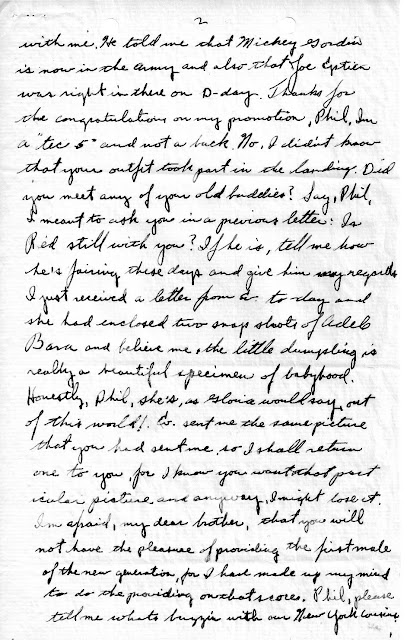 2
with me. He told me that Mickey Gordin
is now in the army and also that Joe Epstien
was right in there on D-day. Thanks for
the congratulations on my promotion, Phil, Im
a "tec 5" and not a buck. No, I didn't know
that your outfit took part in the landing. Did
you meet any of your old buddies? Say, Phil,
I meant to ask you in a previous letter: Is
Red still with you? If he is, tell me how
he's fairing these days and give him my regards
I just received a letter from to-day and
she had enclosed two snap shots of Adele
Bara and believe me, the little dumpling is
really a beautiful specimen of babyhood.
Honestly, Phil, she's, as Gloria would say, out
of this world!. sent me the same picture
that you had sent me so I shall return
one to you, for I know you want that part
icular picture, and anyway, I might lose it.
I'm afraid, my dear brother, that you will
not have the pleasure of providing the first male
of the new generation, for I have made up my mind
to do the providing on that score. Phil, please
tell me whats buzzin with our New York cousins,